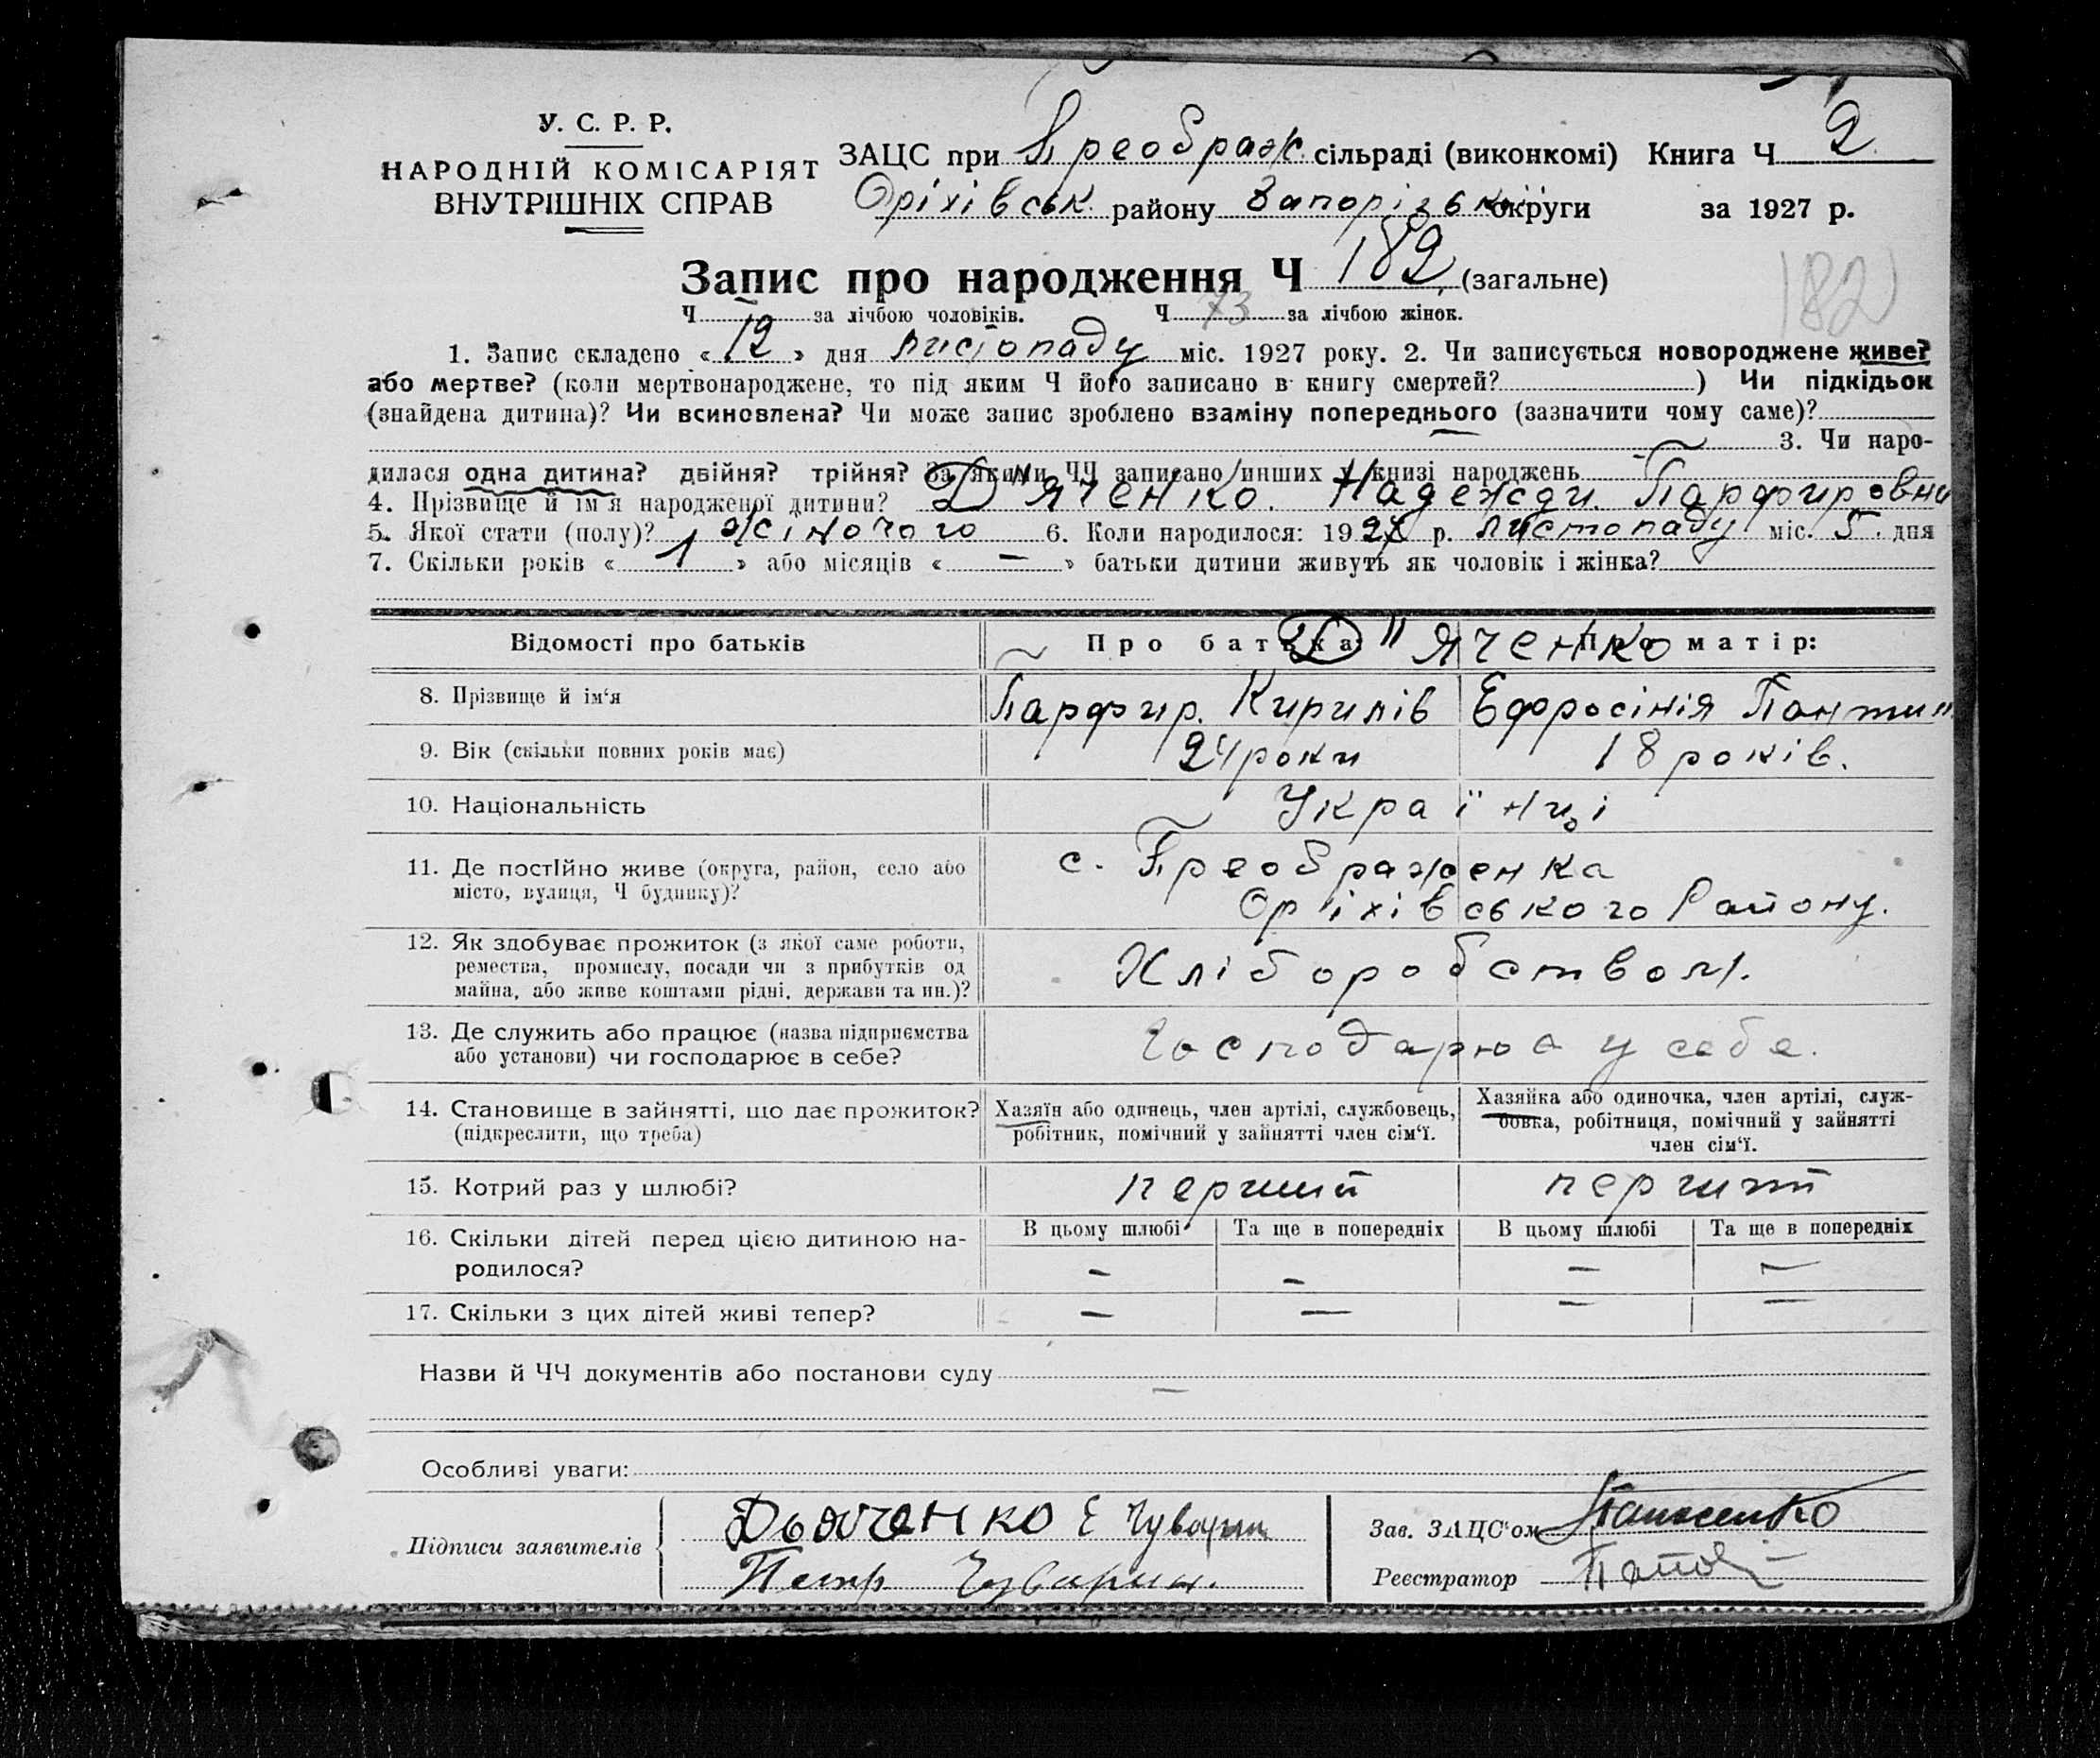 У. С. Р. Р.
НАРОДНІЙ КОМІСАРІЯТ
ВНУТРІШНІХ СПРАВ
ЗАЦС при Преображ сільраді (виконкомі) Книга Ч 2
Оріхівськ району Запорізької округи за 1927 р.
Запис про народження Ч 182 (загальне)
182
Ч за лічбою чоловіків. Ч 73 за лічбою жінок.
1. Запис складено « 12 » дня листопаду міс. 1927 року. 2. Чи записується новороджене живе?
або мертве? (коли мертвонароджене, то під яким Ч його записано в книгу смертей? ) Чи підкідьок
(знайдена дитина)? Чи всиновлена? Чи може запис зроблено взаміну попереднього (зазначити чому саме)?
3. Чи наро-
дилася одна дитина? двійня? трійня? За якими ЧЧ записано инших у книзі народжень
4. Прізвище й ім'я народженої дитини? Д"яченко. Надежди. Парфировни
5. Якої стати (полу)? жіночого 6. Коли народилося: 1927 р. листопаду міс. 5. дня
7. Скільки років « 1 » або місяців « — » батьки дитини живуть як чоловік і жінка?
Відомості про батьків Про батька: Про матір:
Д"яченко
8. Прізвище й ім'я Парфир. Кирилів Ефросінія Панти"
9. Вік (скільки повних років має) 24 роки 18 років.
10. Національність Українці
11. Де постійно живе (округа, район, село або
місто, вулиця, Ч будинку)?
с. Преображенка
Оріхівського Району.
12. Як здобуває прожиток (з якої саме роботи,
ремества, промислу, посади чи з прибутків од
майна, або живе коштами рідні, держави та ин.)?
Хліборобством.
13. Де служить або працює (назва підприємства
або установи) чи господарює в себе?
Господарює у себе.
14. Становище в зайнятті, що дає прожиток?
(підкреслити, що треба)
Хазяїн або одинець, член артілі, службовець,
робітник, помічний у зайнятті член сім'ї.
Хазяйка або одиночка, член артілі, служ-
бовка, робітниця, помічний у зайнятті
член сім'ї.
15. Котрий раз у шлюбі? перший перший
16. Скільки дітей перед цією дитиною на-
родилося?
В цьому шлюбі Та ще в попередніх В цьому шлюбі Та ще в попередніх
— — — —
17. Скільки з цих дітей живі тепер? — — — —
Назви й ЧЧ документів або постанови суду —
Особливі уваги:
Підписи заявителів
Дьяченко Е Чуварин
Петр Чуварин.
Зав. ЗАЦС'ом
Реєстратор